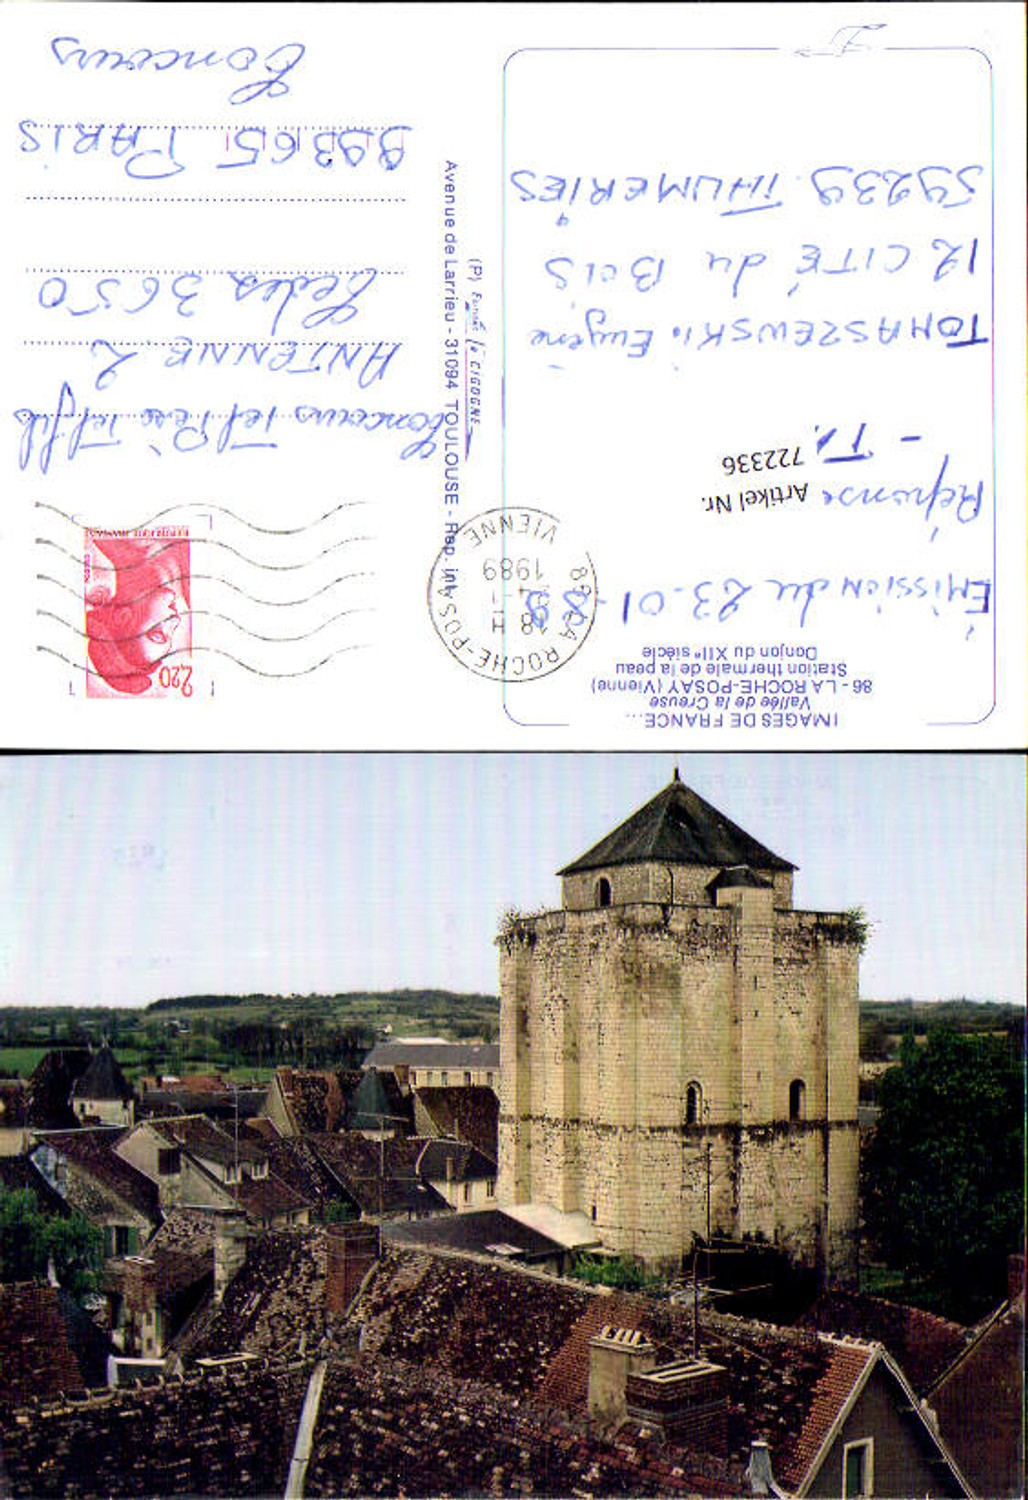 IMAGES DE FRANCE...
Vallée de la Creuse
86 - LA ROCHE-POSAY (Vienne)
Station thermale de la peau
Donjon du XIIe siècle
Emission du 23-01-89
Réponse
Artikel Nr.
722336
- T1.
TOMASZEWSKi Eugène
12 CITÉ du BOIS
59239 THUMERIES
86 LA ROCHE-POSAY
18 H
1989
VIENNE
Avenue de Larrieu - 31094 TOULOUSE - Rep. int.
2,20
REPUBLIQUE FRANÇAISE
Concours Tel Père Tel fils
ANTENNE 2
Cedex 3650
99365 PARIS
Concours